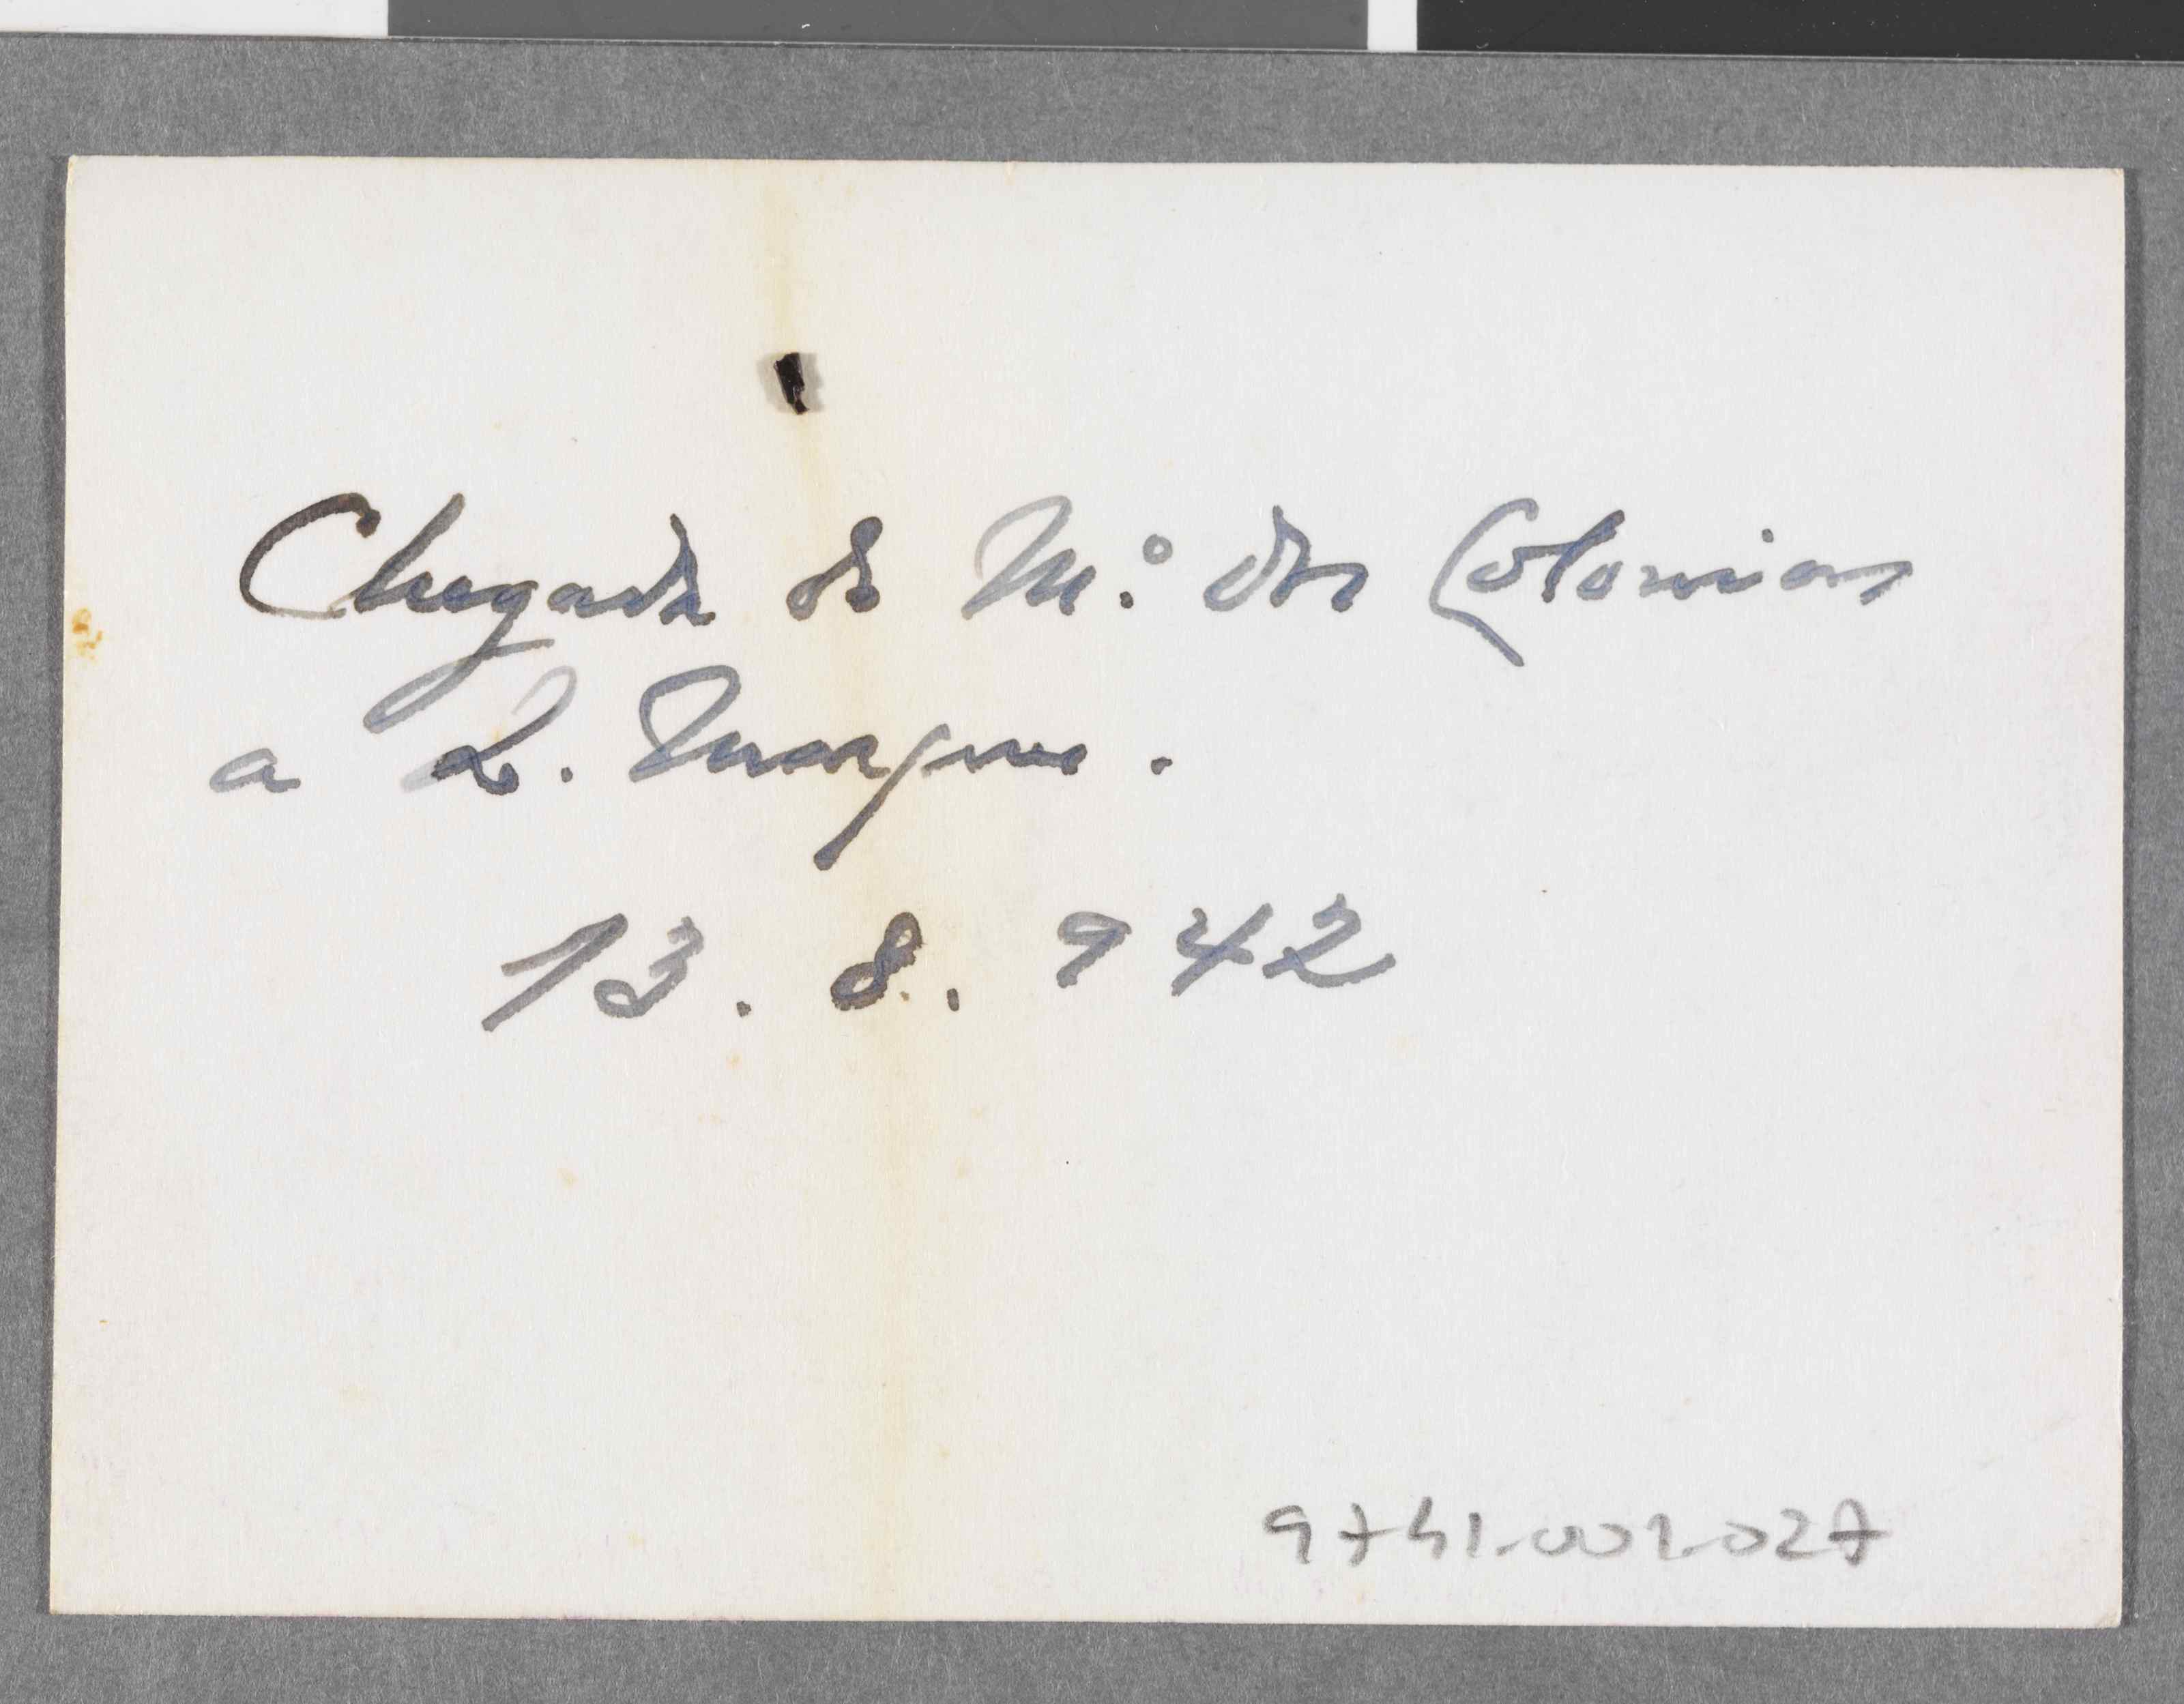 Chegada do M.º das Colonias
a L. Marques.
13. 8. 942
9741-001-027